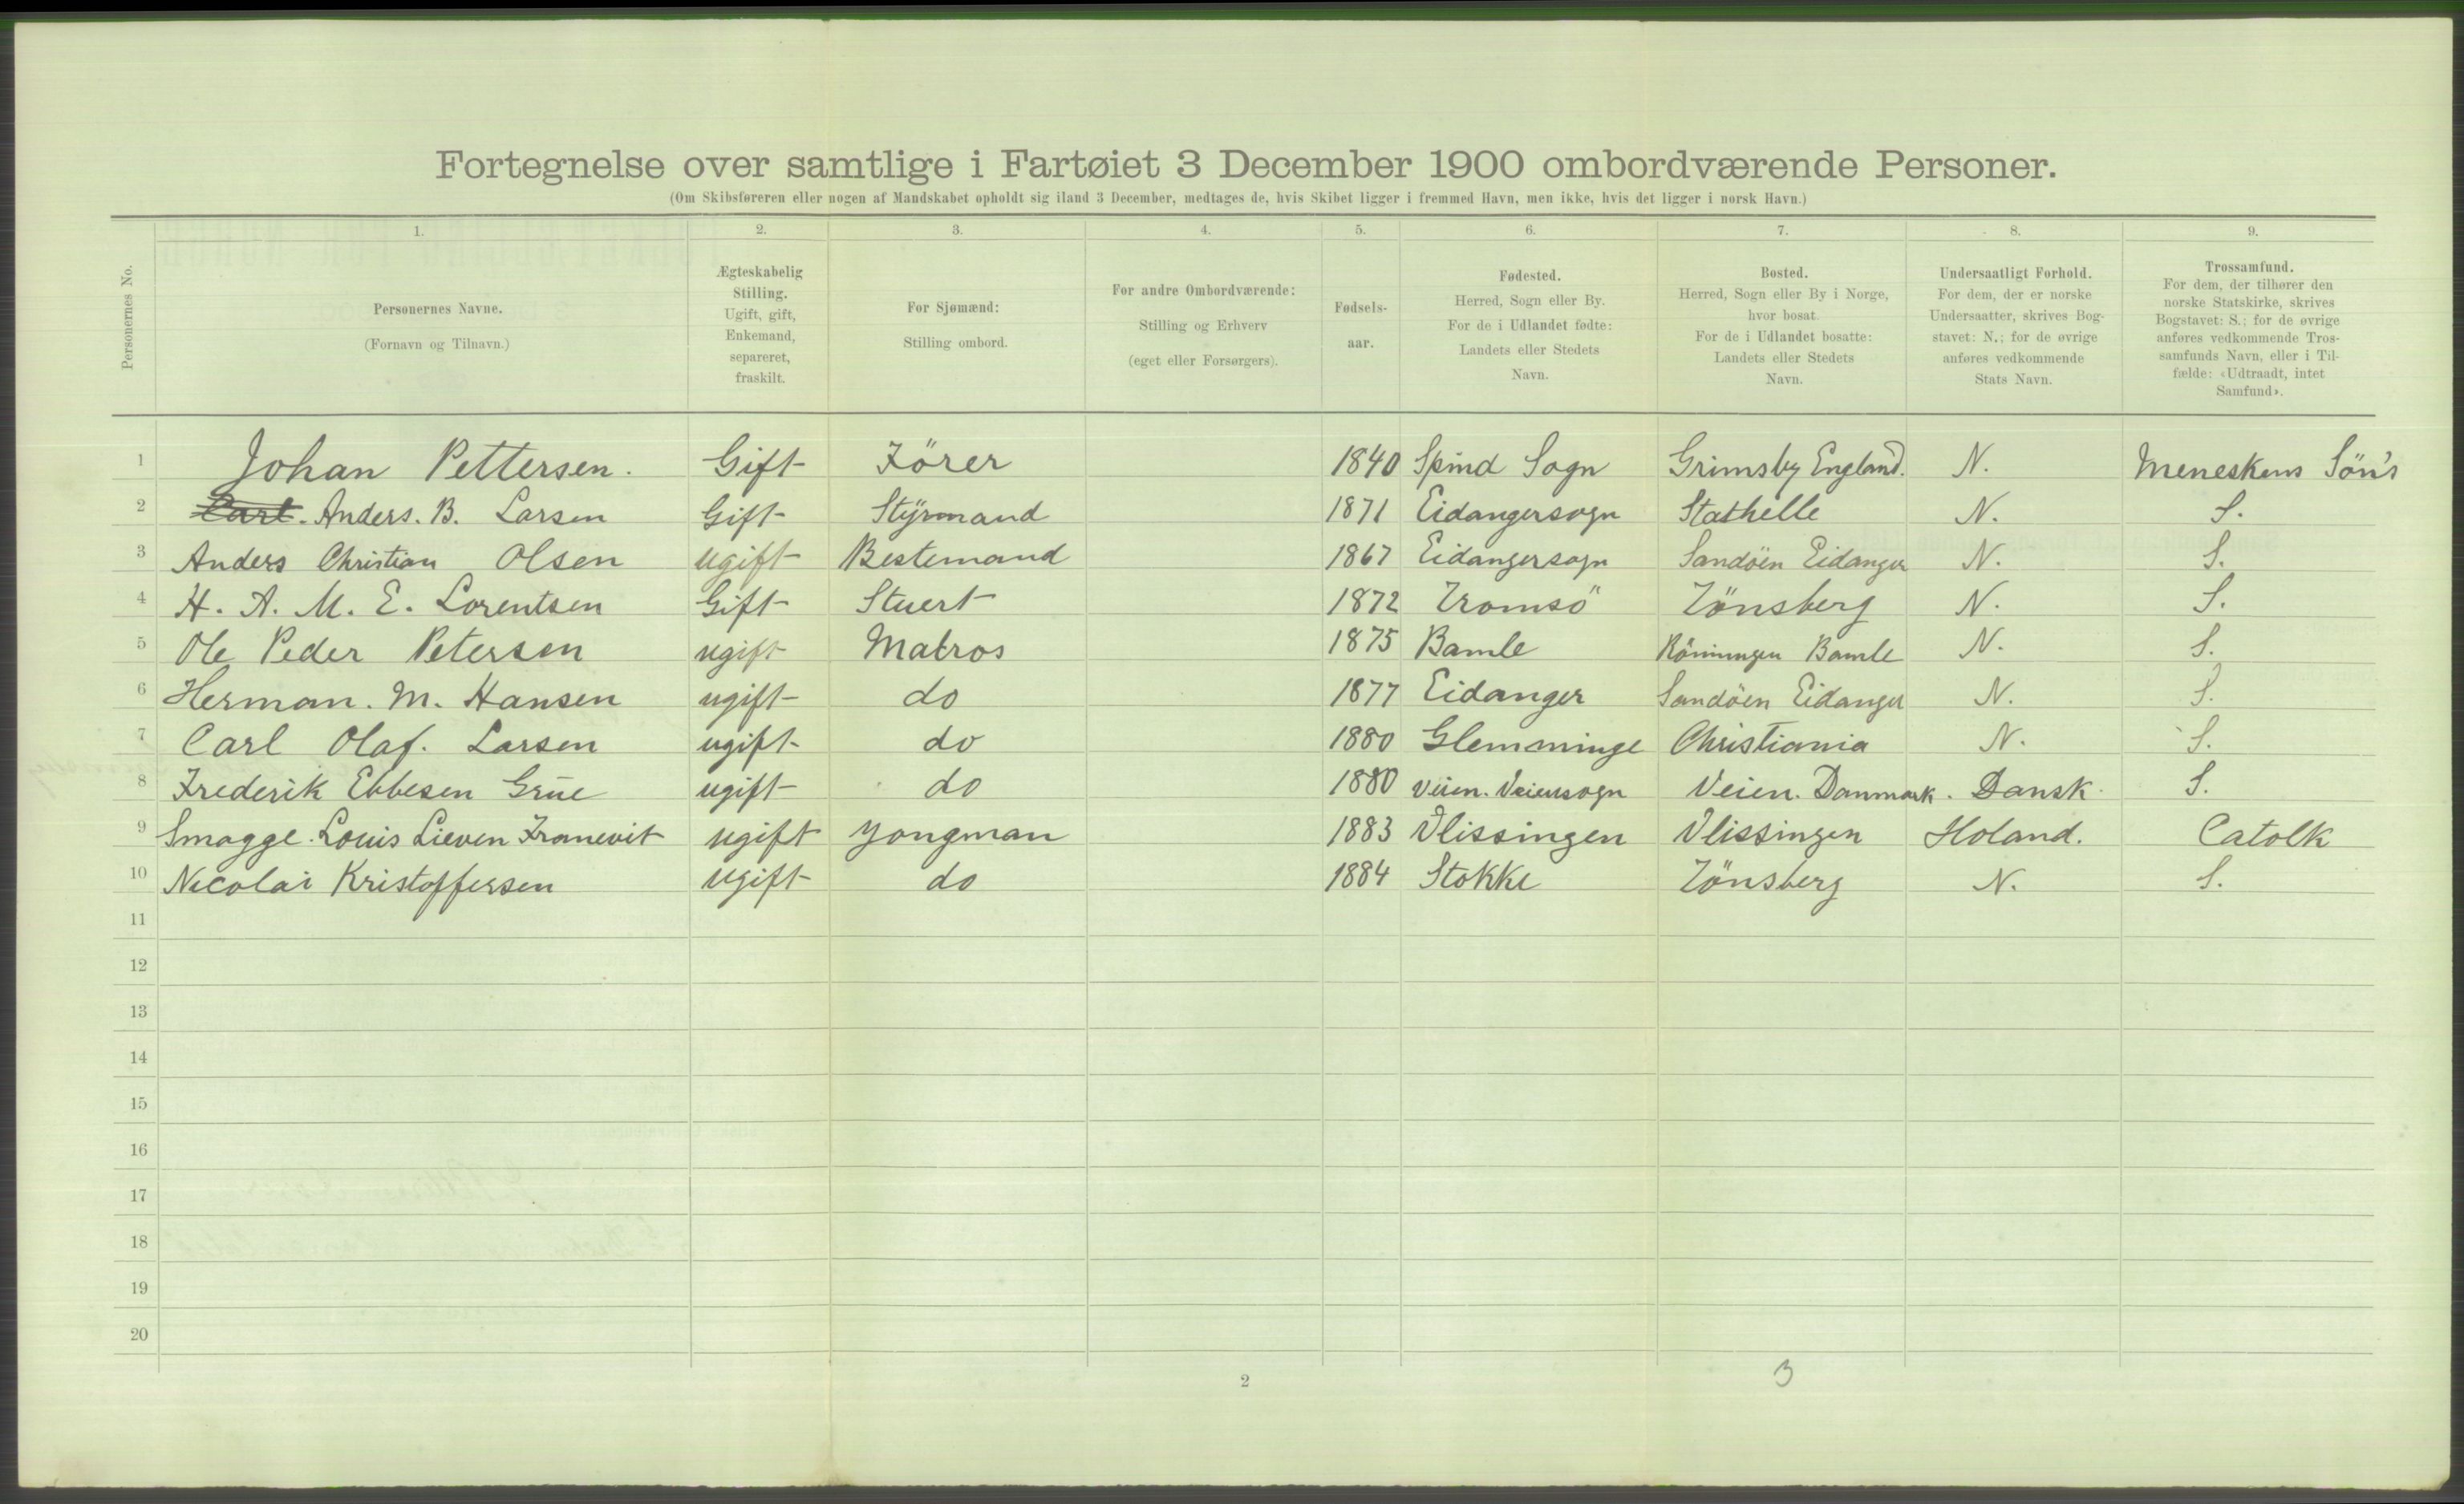 Fortegnelse over samtlige i Fartøiet 3 December 1900 ombordværende Personer.
(Om Skibsføreren eller nogen af Mandskabet opholdt sig iland 3 December, medtages de, hvis Skibet ligger i fremmed Havn, men ikke, hvis det ligger i norsk Havn.)
Personernes No.
1.
Personernes Navne.
(Fornavn og Tilnavn.)
2.
Ægteskabelig
Stilling.
Ugift, gift,
Enkemand,
separeret,
fraskilt.
3.
For Sjømænd:
Stilling ombord.
4.
For andre Ombordværende:
Stilling og Erhverv
(eget eller Forsørgers).
5.
Fødsels-
aar.
6.
Fødested.
Herred, Sogn eller By.
For de i Udlandet fødte:
Landets eller Stedets
Navn.
7.
Bosted.
Herred, Sogn eller By i Norge,
hvor bosat.
For de i Udlandet bosatte:
Landets eller Stedets
Navn.
8.
Undersaatligt Forhold.
For dem, der er norske
Undersaatter, skrives Bog-
stavet: N.; for de øvrige
anføres vedkommende
Stats Navn.
9.
Trossamfund.
For dem, der tilhører den
norske Statskirke, skrives
Bogstavet: S.; for de øvrige
anføres vedkommende Tros-
samfunds Navn, eller i Til-
fælde: «Udtraadt, intet
Samfund».
1 Johan Pettersen. Gift Förer 1840 Spind Sogn Grimsby England. N. Meneskens Sön's
2 Carl. Anders. B. Larsen Gift Stÿrmand 1871 Eidangersogn Stathelle N. S.
3 Anders Christian Olsen ugift Bestemand 1867 Eidangersogn Sandöen Eidanger N. S.
4 H. A. M. E. Lorentsen Gift Stuert 1872 Tromsö Tönsberg N. S.
5 Ole Peder Petersen ugift Matros 1875 Bamle Röningen Bamle N. S.
6 Herman. M. Hansen ugift do 1877 Eidanger Sandöen Eidanger N. S.
7 Carl Olaf. Larsen ugift do 1880 Glemminge Christiania N. S.
8 Frederik Ebbesen Grue ugift do 1880 Veien. Veiensogn Veien. Danmark. Dansk S.
9 Smagge. Louis Lieven ugift Yongman 1883 Vlissingen Vlissingen Holand. Catolk
10 Nicolai Kristoffersen ugift do 1884 Stokke Tönsberg N. S.
11
12
13
14
15
16
17
18
19
20
2
3